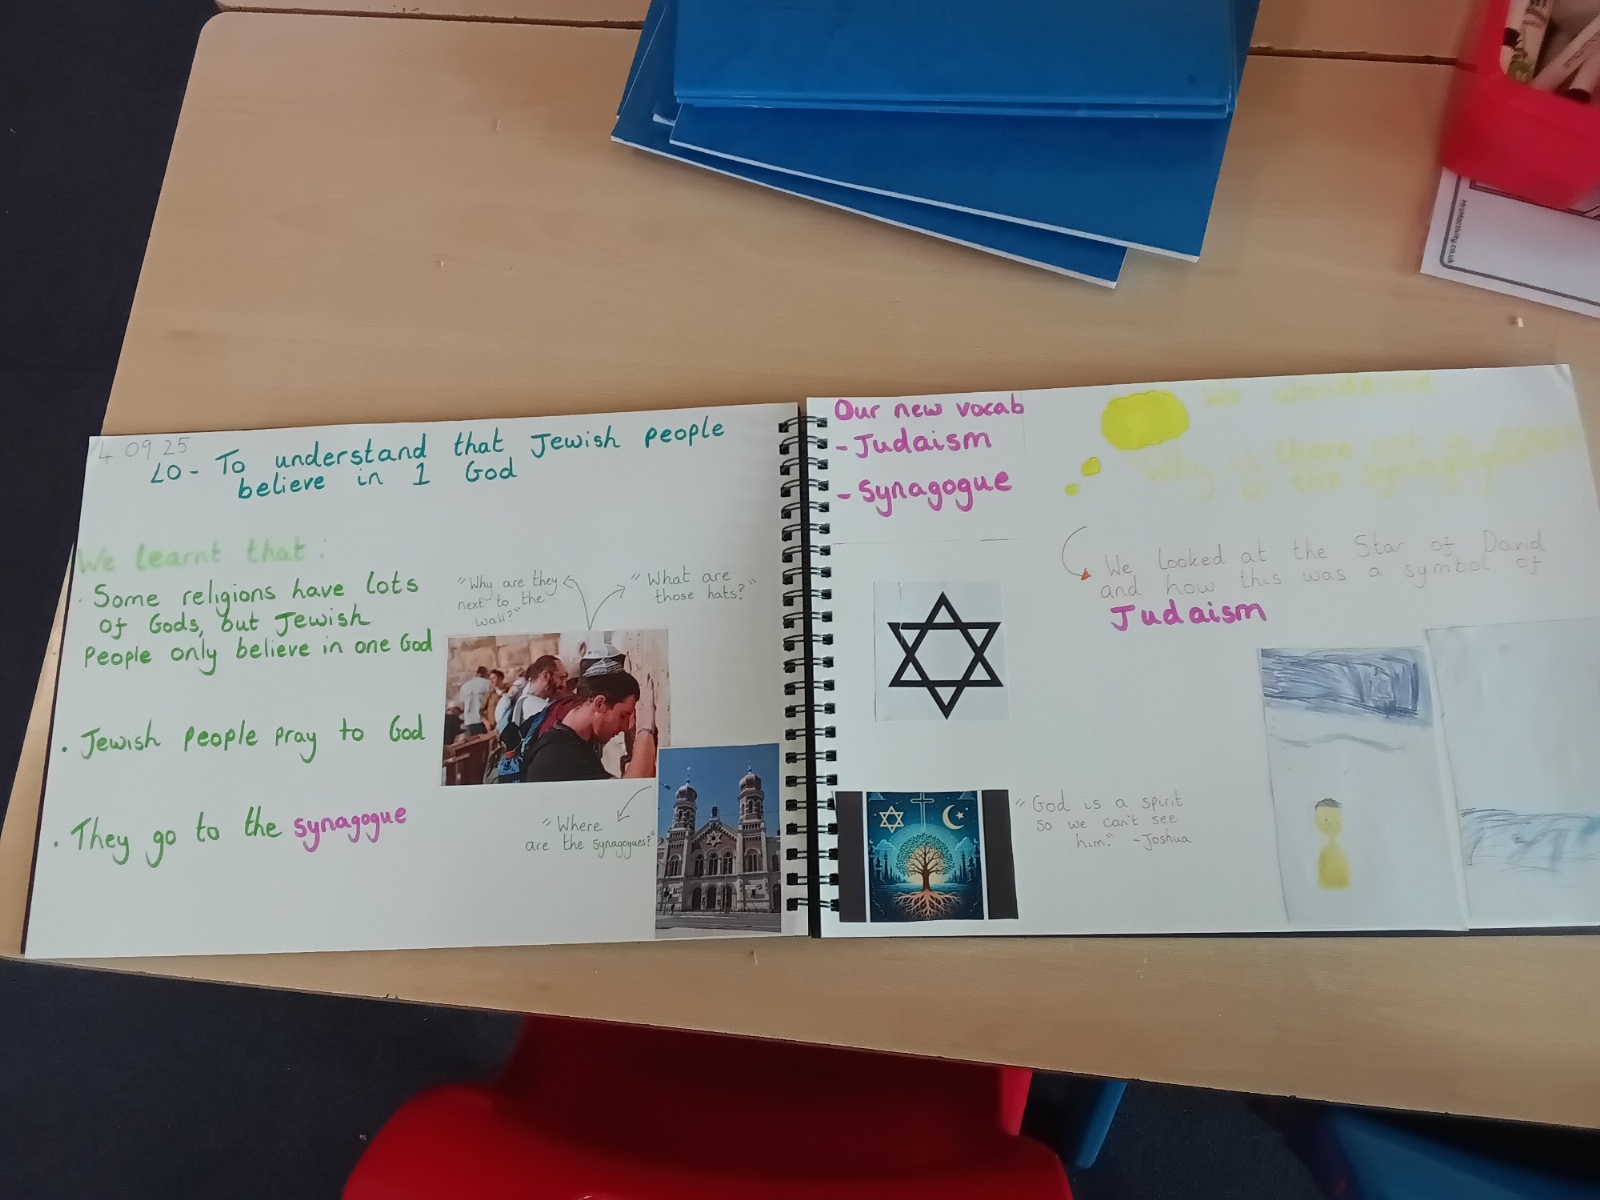 4 09.25
LO - To understand that Jewish people
believe in 1 God
We learnt that:
· Some religions have lots
of Gods, but Jewish
People only believe in one God
· Jewish people pray to God
· They go to the synagogue
"Why are they
next to the
wall?"
"What are
those hats?"
"Where
are the synagogues?"
Our new vocab
- Judaism
- Synagogue
We wondered
"Why is there not a
in the synagogue
We looked at the Star of David
and how this was a symbol of
Judaism
"God is a spirit
so we can't see
him." - Joshua